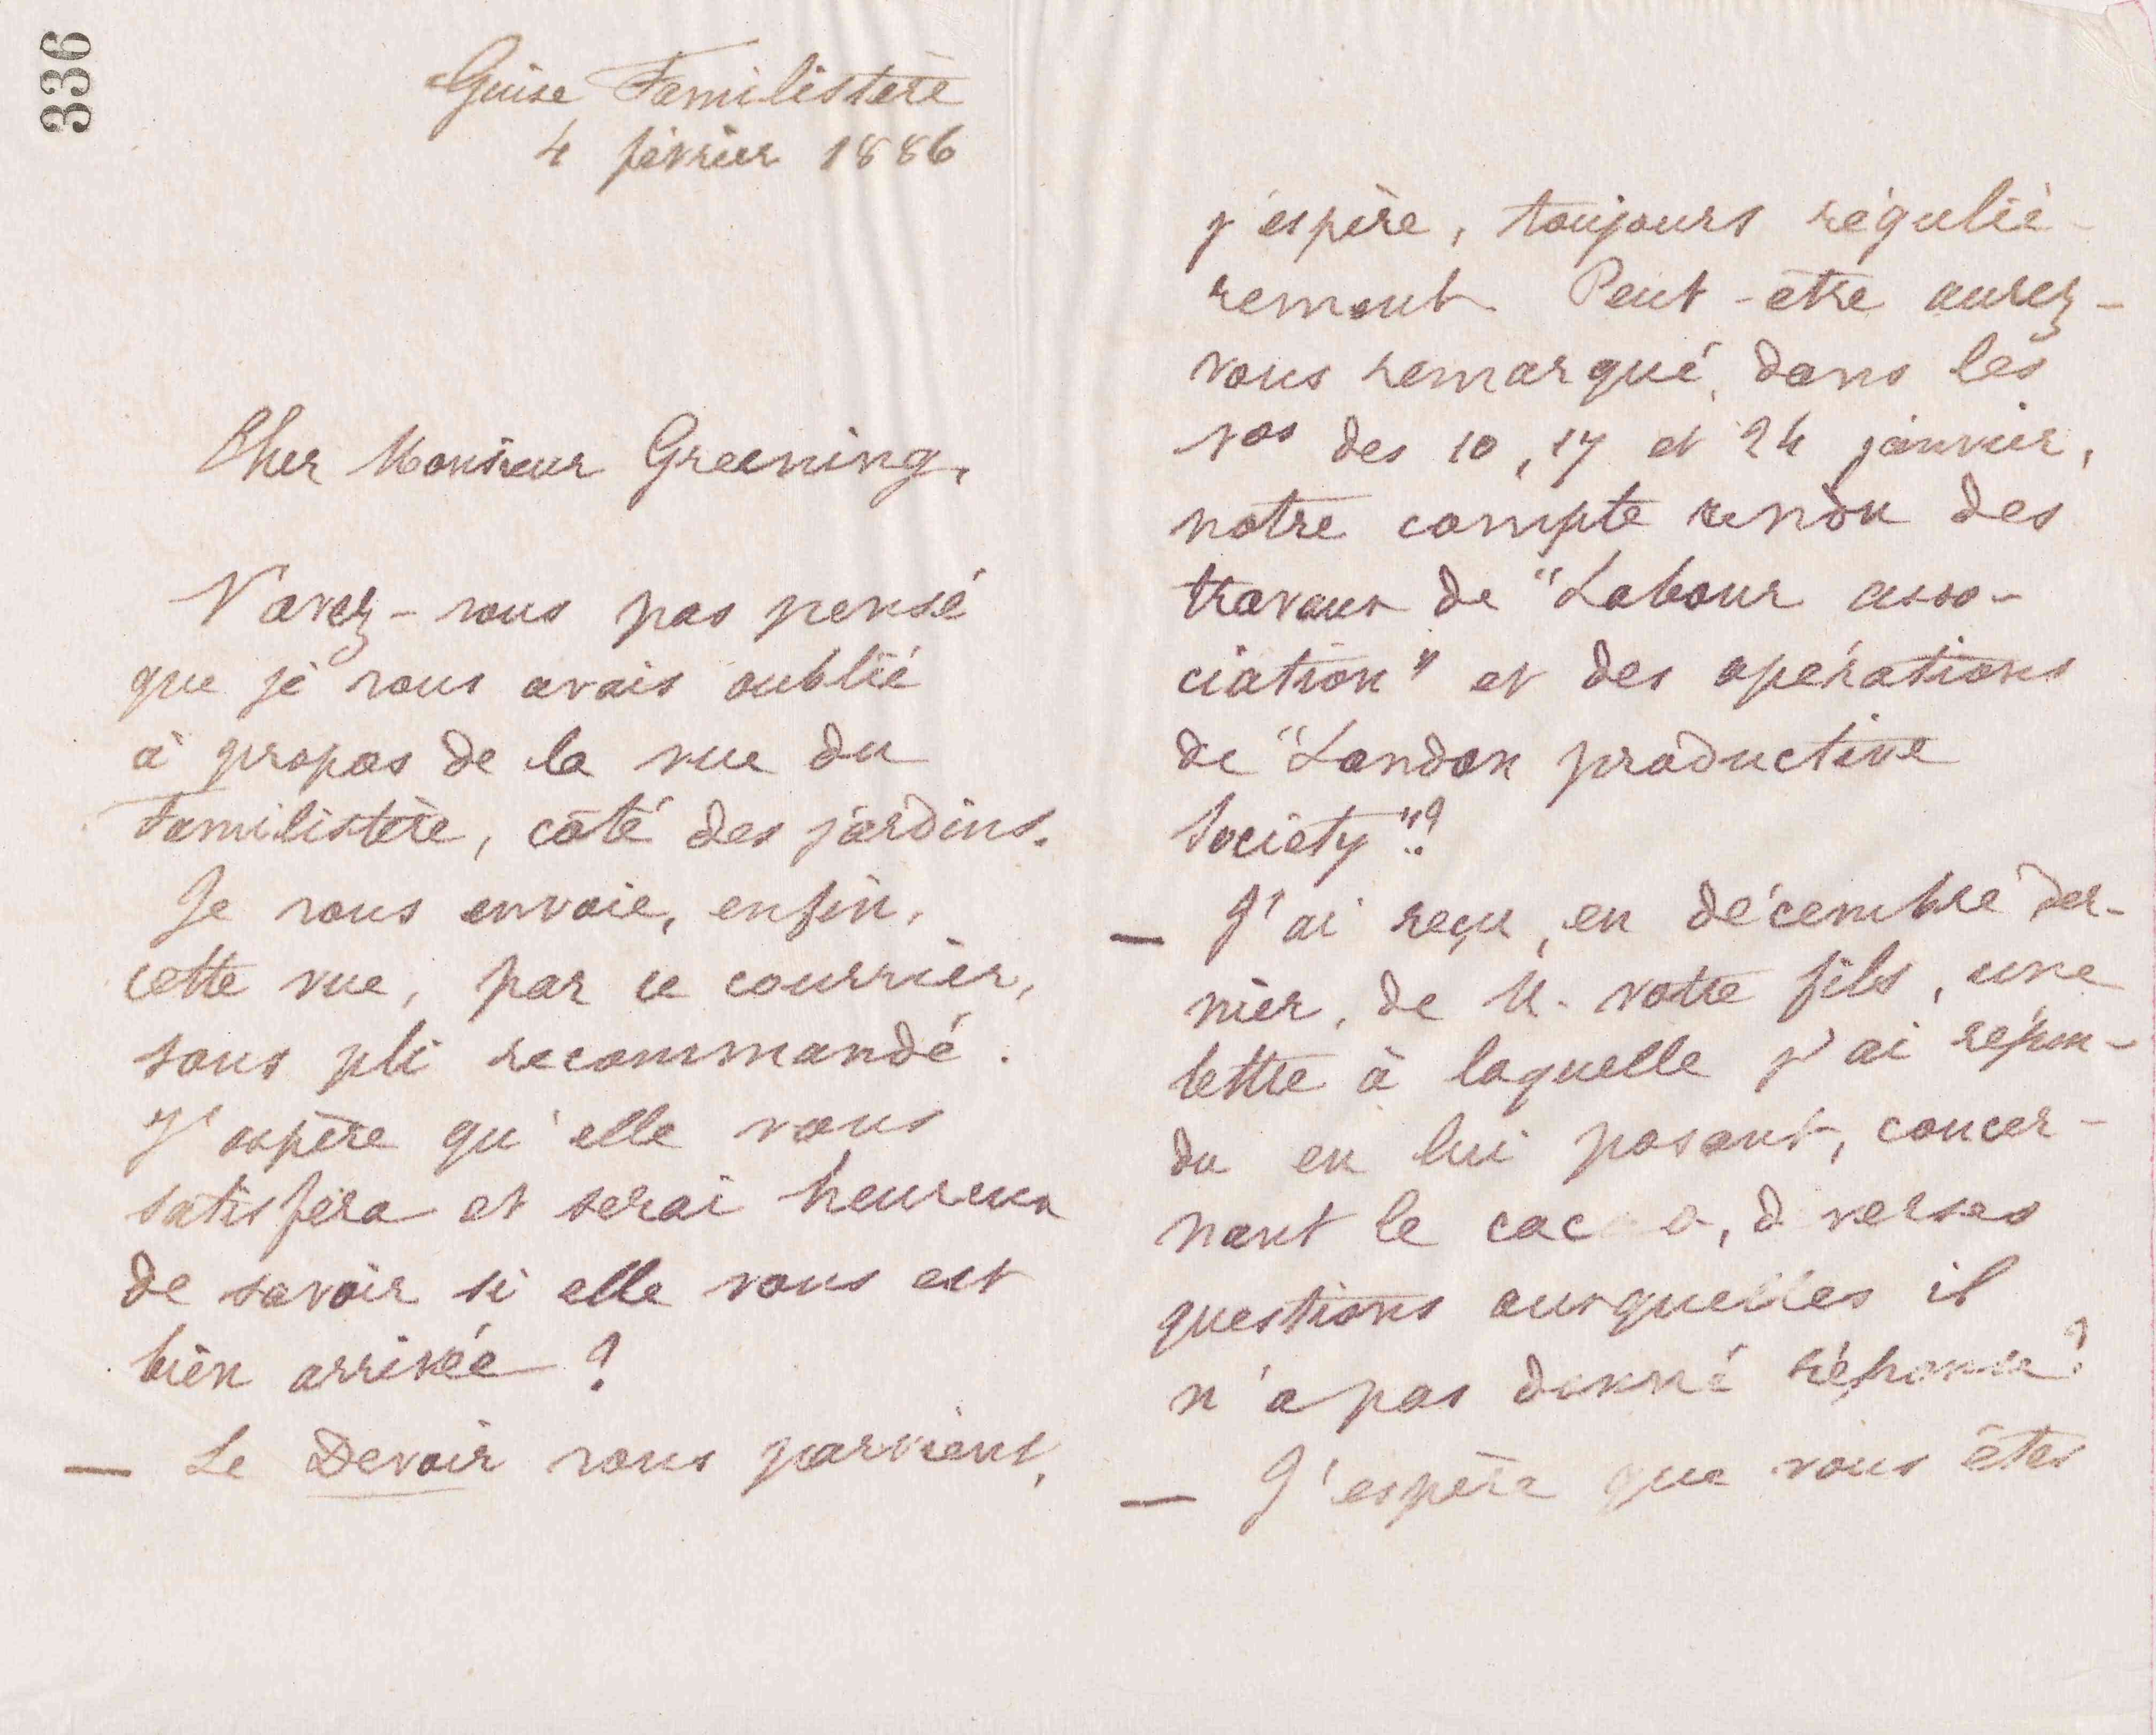 336
Guise Familistère
4 février 1886
Cher Monsieur Greening,
N'avez-vous pas pensé
que je vous avais oublié
à propos de la vue du
Familistère, côté des jardins.
Je vous envoie, enfin,
cette vue, par ce courrier,
sous pli recommandé.
J'espère qu'elle vous
satisfera et serai heureux
de savoir si elle vous est
bien arrivée ?
— Le Devoir vous parvient,
j'espère, toujours réguliè-
rement. Peut-être aurez-
vous remarqué, dans les
nos des 10, 17 et 24 janvier,
notre compte rendu des
travaux de "Labour asso-
ciation" et des opérations
de "London productive
Society"?
— J'ai reçu, en décembre der-
nier, de M. votre fils, une
lettre à laquelle j'ai répon-
du en lui posant, concer-
nant le cacao, diverses
questions auxquelles il
n'a pas donné réponse ?
— J'espère que vous êtes